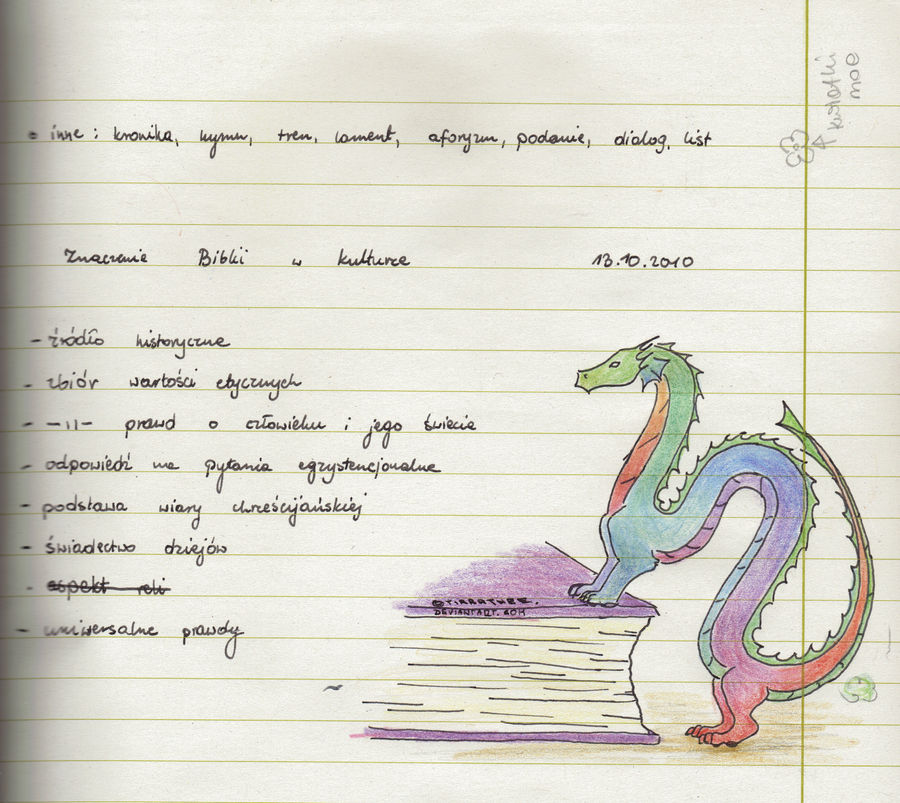 • inne : kronika, hymn, tren, lament, aforyzm, podanie, dialog, list
kwiatki
moe
Znaczenie Biblii w kulturze 13.10.2010
- źródło historyczne
- zbiór wartości etycznych
- -11- prawd o człowieku i jego świecie
- odpowiedź na pytania egzystencjonalne
- podstawa wiary chrześcijańskiej
- świadectwo dziejów
- aspekt reli
- uniwersalne prawdy
DEVIANTART.COM